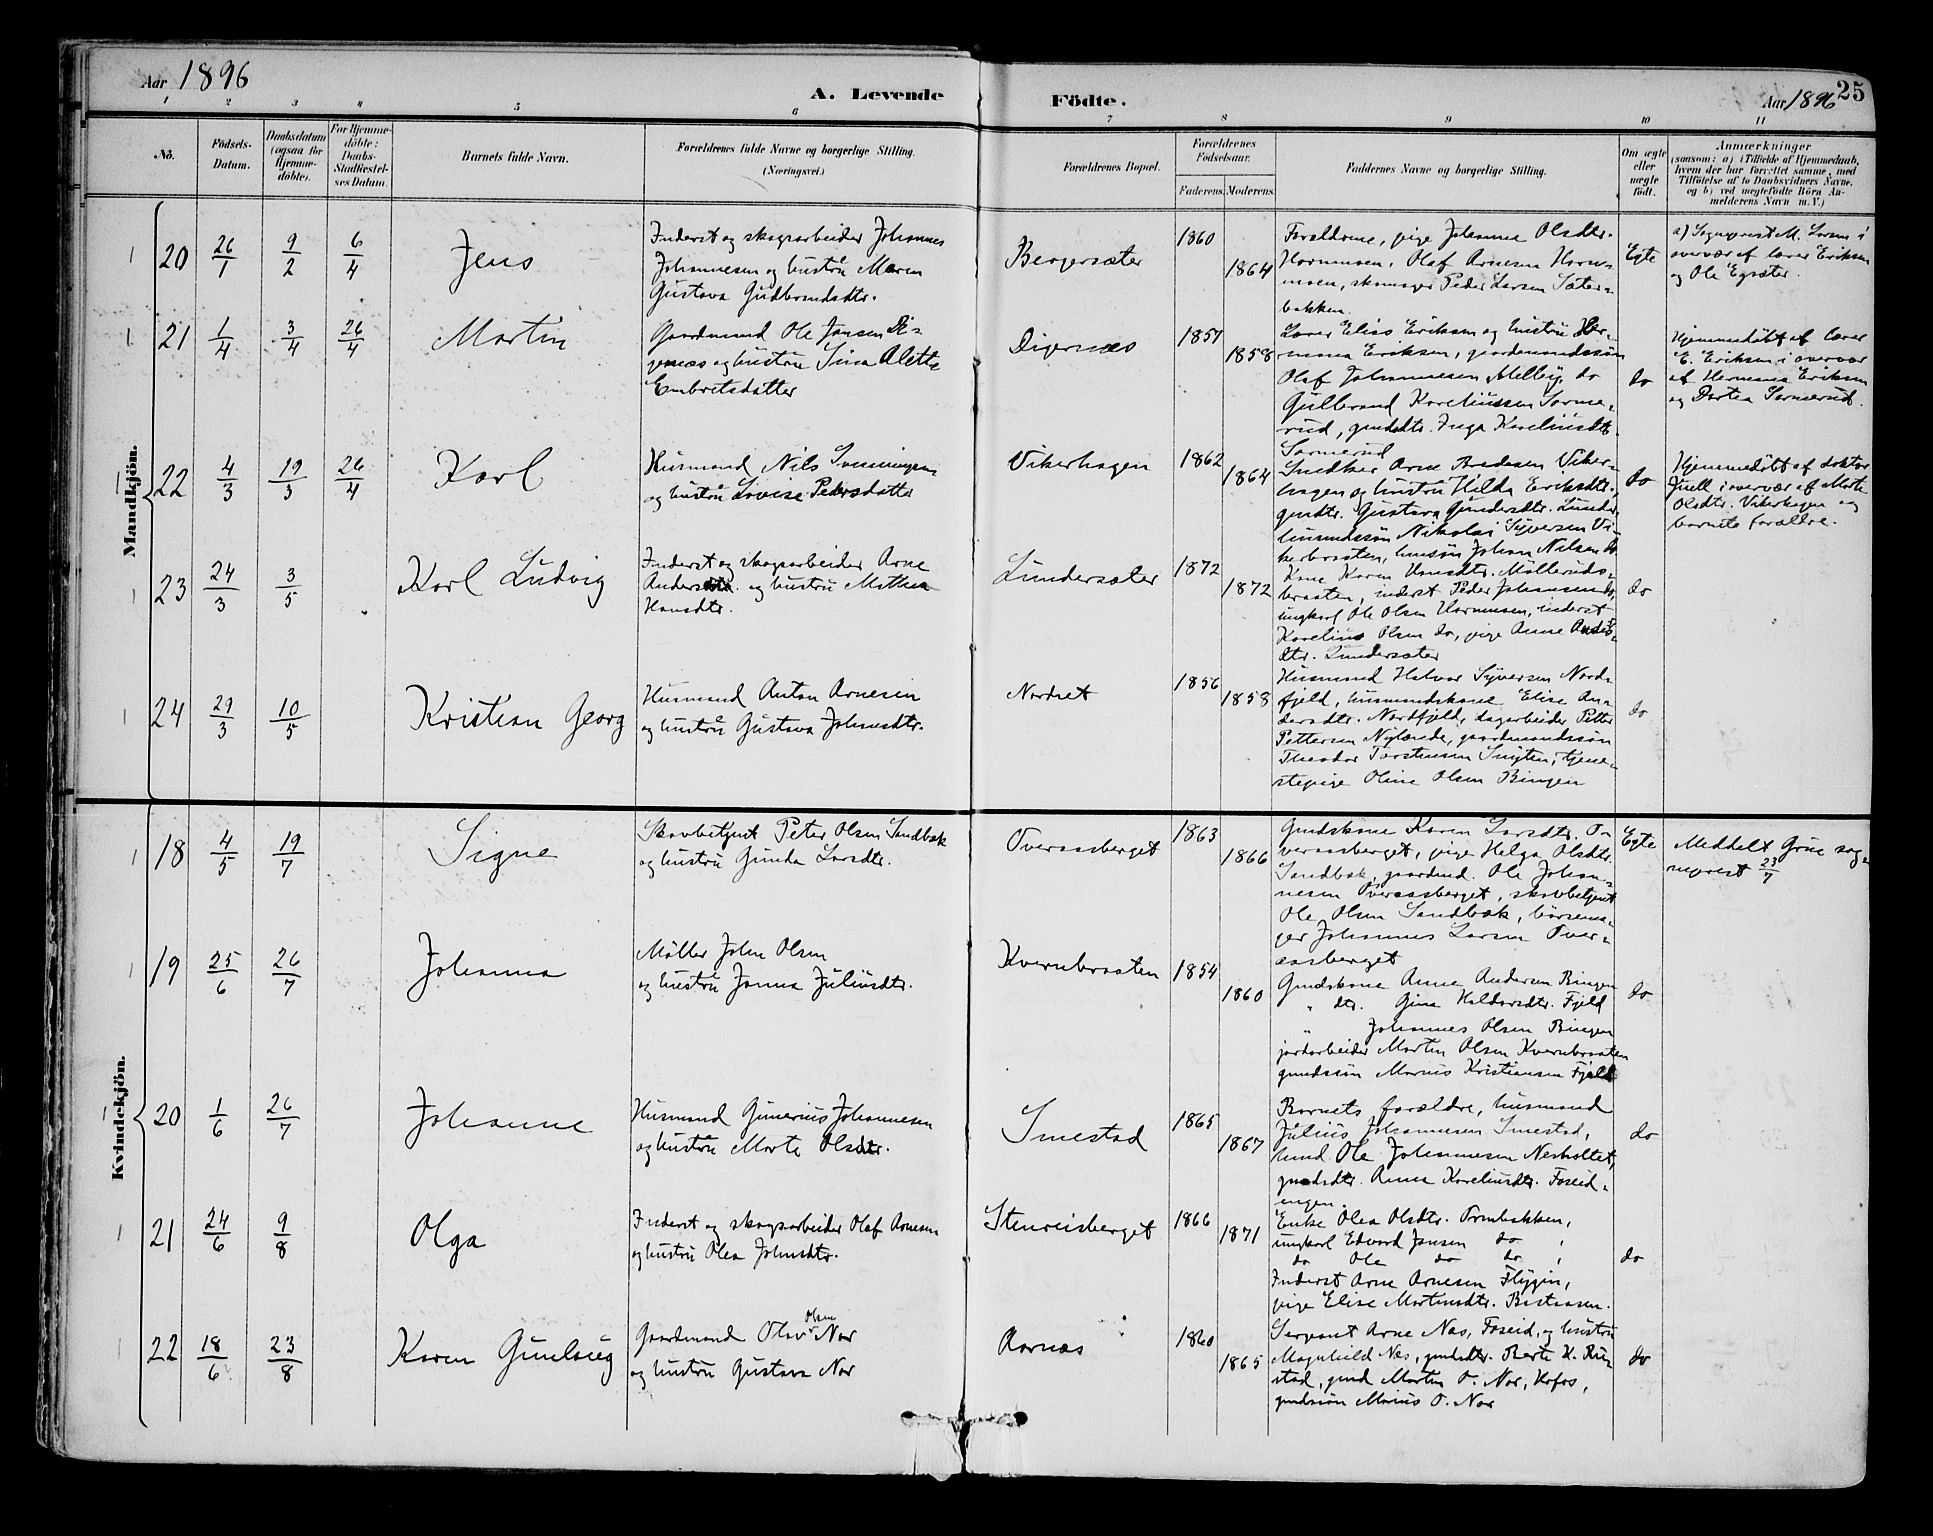 Aar 1896
A. Levende
Födte.
Aar 1896
25
1 2 3 4 5 6 7 8 9 10 11
No.
Födsels-Datum.
Daabsdatum (ogsaa for Hjemmedöbte).
For Hjemmedöbte: Daabs-Stadfæstelses Datum.
Barnets fulde Navn.
Forældrenes fulde Navne og borgerlige Stilling. (Næringsvei.)
Forældrenes Bopæl.
Forældrenes Födselsaar.
Faderens. Moderens.
Faddernes Navne og borgerlige Stilling.
Om ægte eller uægte födt.
Anmærkninger
(saasom: a) i Tilfælde af Hjemmedaab, hvem der har forrettet samme, med Tilföielse af to Daabsvidners Navne, og b) ved uægtefödte Börn Anmelderens Navn m. V.)
Mandkjön.
20 26/1 9/2 6/4 Jens
Inderst og skogsarbeider Johannes
Johannesen og hustru Maren
Gustava Gudbrandsdtr.
Bergersæter 1860 1864
Forældrene, pige Johanne Olsdtr.
Hornmoen, Olaf Arnesen Horn-
moen, skomager Peder Larsen Sæter-
bakken
Egte
a) Sogneprest M. Lorum i
overvær af lærer Eriksen
og Ole Egsæter.
21 1/4 3/4 26/4 Martin
Gaardmand Ole Jansen Di-
gernæs og hustru Sina Alette
Embretsdatter
Digernæs 1857 1858
Lærer Elias Eriksen og hustru Her-
mana Eriksen, gaardmandssön
Olaf Johannesen Melby, do
Gulbrand Koreliussen Sorme-
rud, gmdsdtr. Inga Koreliusdtr.
Sormerud
do
Hjemmedöbt af lærer
E. Eriksen i overvær
af Hermana Eriksen
og Dortea Sormerud.
22 4/3 19/3 26/4 Karl
Husmand Nils Svenningsen
og hustru Lovise Pedersdatter
Vikerhagen 1862 1864
Snedker Arne Bredesen Viker-
hagen og hustru Hilda Eriksdtr.,
gmdtr. Gustava Gundersdtr. Lunder,
husmandssön Nikolai Syversen Vi-
kerbraaten, hmsön Johan Nilsen do
do
Hjemmedöbt af doktor
Juell i overvær af Marte
Olsdtr. Vikerhagen og
barnets forældre.
23 24/3 3/5 Karl Ludvig
Inderst og skogsarbeider Arne
Anders og hustru Mathea
Hansdtr.
Lundersæter 1872 1872
Kone Karen Hansdtr. Mölleruds-
braaten, inderst Peder Johansen do,
ungkarl Ole Olsen Hornmoen, inderst
Korelius Olsen do, pige Anne Anders-
dtr. Lundersæter
do
24 29/3 10/5 Kristian Georg
Husmand Anton Arnesen
og hustru Gustava Johnsdtr.
Nordset 1856 1858
Husmand Halvor Syversen Nord-
fjeld, husmandskone Elise An-
dersdtr. Nordfjeld, dagarbeider Petter
Pettersen Nylænde, gaardmandssön
Theodor Torstensen Snigten, tjene-
stepige Oline Olsen Bingen
do
Kvindekjön.
18 4/5 19/7 Signe
Skovbetjent Peter Olsen Sandbæk
og hustru Gunda Larsdtr.
Overaasberget 1863 1866
Gmdskone Karen Larsdtr. O-
veraasberget, pige Helga Olsdtr.
Sandbæk, gaardmd. Ole Johan-
nesen Overaasberget, skovbetjent
Ole Olsen Sandbæk, börsema-
ger Johannes Larsen Over-
aasberget
Egte
Meddelt Grue sog-
neprest 23/7
19 25/6 26/7 Johanna
Möller John Olsen
og hustru Janna Juliusdtr.
Kvernbraaten 1854 1860
Gmdskone Anne Andersen Bingen
" dtr. Gina Haldorsdtr. Fjeld
" Johannes Olsen Bingen
jordarbeider Martin Olsen Kvernbraaten
gmdssön Marius Kristiansen Fjeld
do
20 1/6 26/7 Johanne
Husmand Gunerius Johannesen
og hustru Marte Olsdtr.
Smestad 1865 1867
Barnets forældre, husmand
Julius Johannesen Smestad,
hmd Ole Johannesen Nesholtet,
gmdsdtr. Anna Koreliusdtr. Foseid-
engen
do
21 24/6 9/8 Olga
Inderst og skogsarbeider Olaf Arnesen
og hustru Olea Johnsdtr.
Stenreisberget 1866 1871
Enke Olea Olsdtr. Ormbakken,
ungkarl Edvard Jansen do,
do Ole do do,
Inderst Arne Arnesen Flygin,
pige Elise Martinsdtr. Bastaasen.
do
22 18/6 23/8 Karen Gunlaug
Gaardmand Olav Olsen Nor
og hustru Gustava Nor
Aarnæs 1860 1865
Sergeant Arne Næs, Foseid, og hustru
Magnhild Næs, gmdsdtr. Berte K. Rus-
stad, gmd Martin O. Nor, Hofos,
gmdssön Marius O. Nor
do